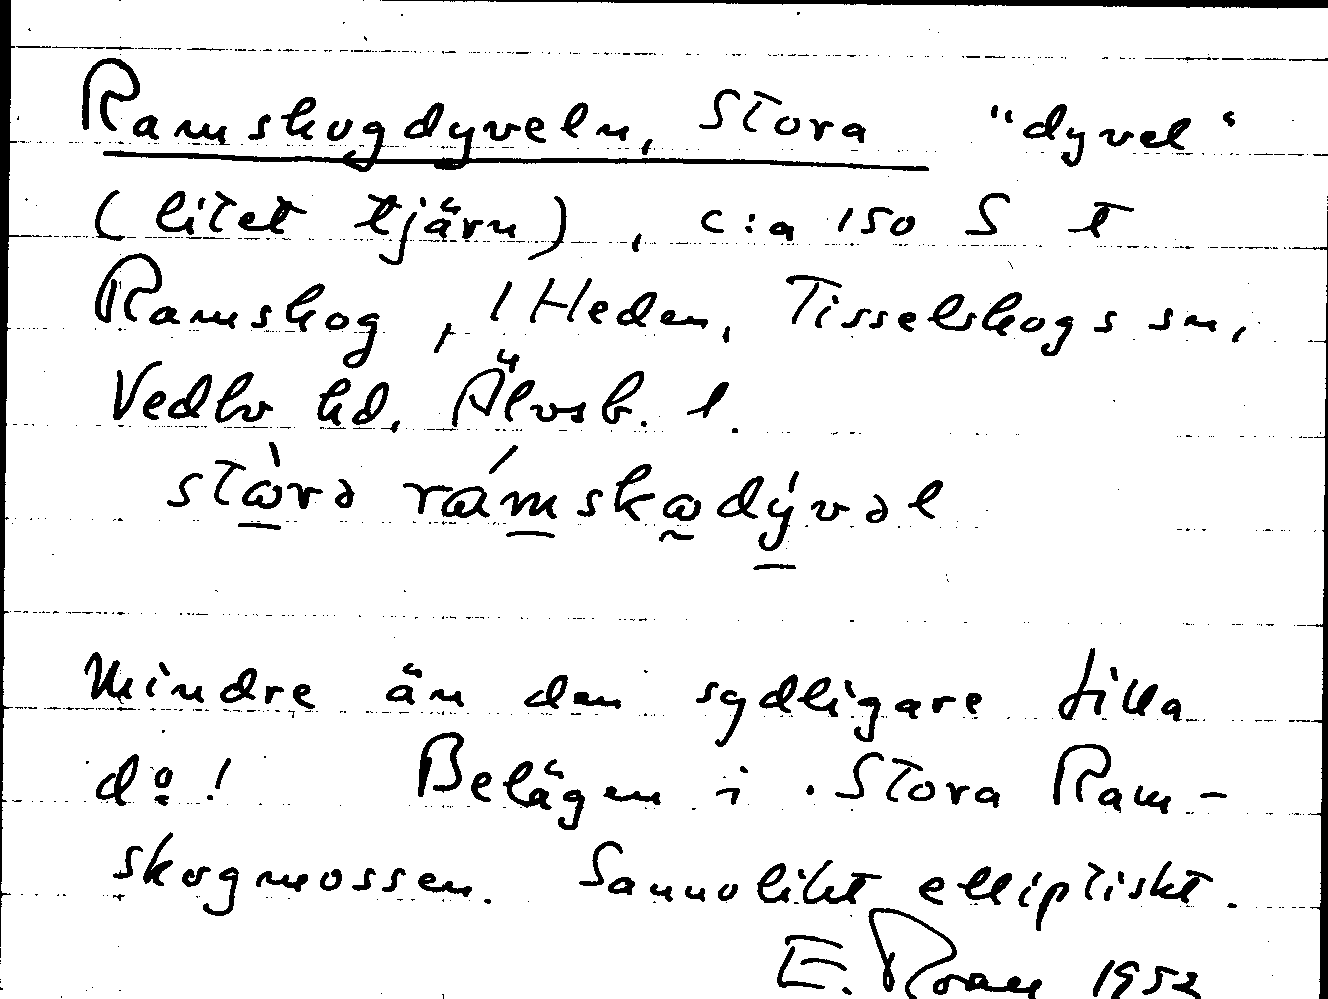 Ramskogdyveln, Stora "dyvel"
(litet tjärn), c:a 150 S t
Ramskog, 1 Heden, Tisselskogs sn,
Vedbo hd, Älvsb. l.
stɷ̀rə rámskɷdývəl
Mindre än den sydligare Lilla
dº! Belägen i Stora Ram-
skogmossen. Sannolikt elliptiskt.
E. 1952